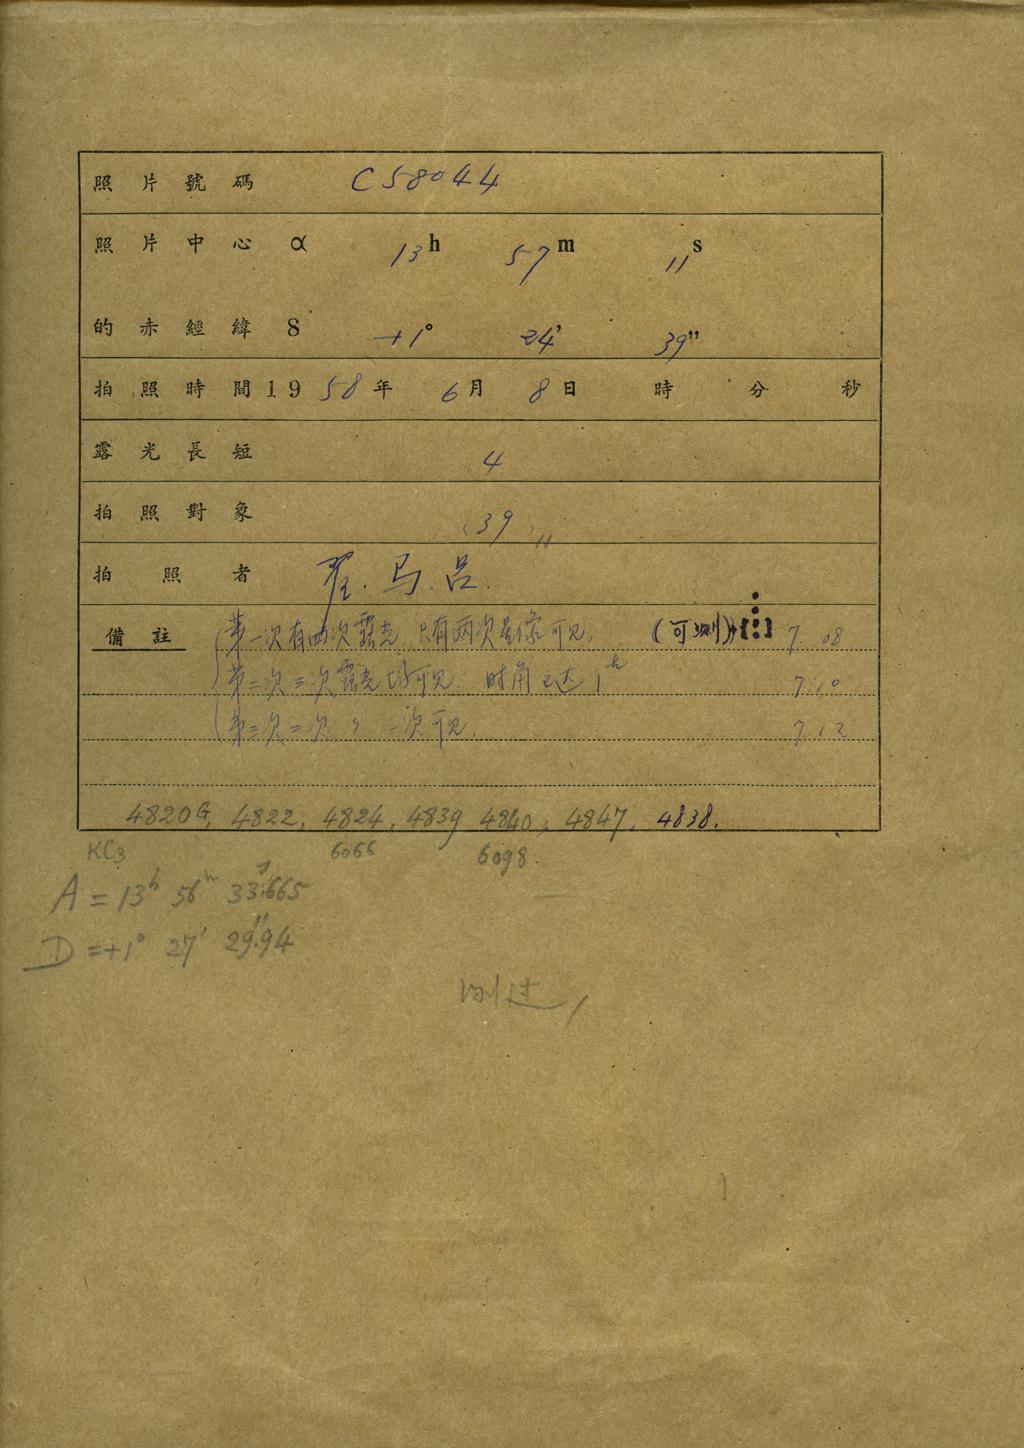 照片號碼 C58044
照片中心α 13h 57m 11s
的赤經緯δ +1° 24' 39"
拍照時間1958年 6月 8日 時 分 秒
露光長短 4
拍照對象 (39)
拍照者 翟.马.吕.
備註 第一次有两次露光,只有两次星像可见, (可测) 7. 08
第二次三次露光均可见. 时角已达1h 7.10
第三次二次 〃 一次可见. 7.12
4820G, 4822, 4824, 4839 4840, 4847, 4838.
KC3 6066 6098
A = 13h 56m 33s.665
D = +1° 27' 29".94
测过